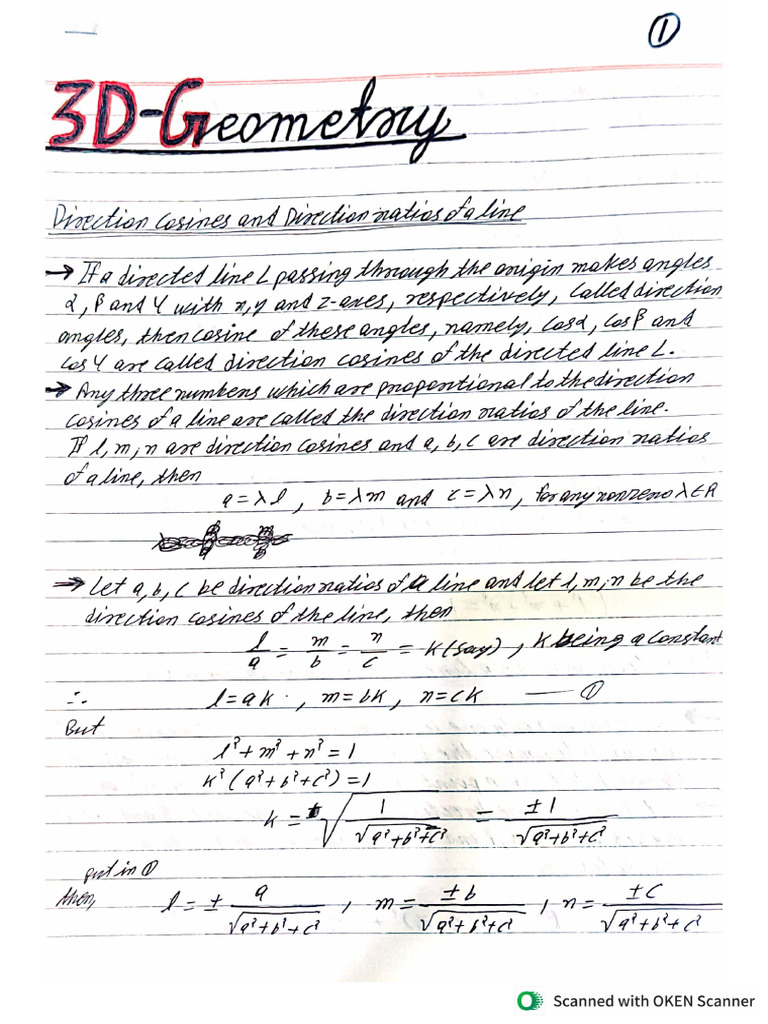 ①
3D-Geometry
Direction Cosines and Direction ratios of a line
→ If a directed line L passing through the origin makes angles
α, β and γ with x, y and z-axes, respectively, called direction
angles, then cosine of these angles, namely, cosα, cosβ and
cosγ are called direction cosines of the directed line L.
→ Any three numbers which are proportional to the direction
cosines of a line are called the direction ratios of the line.
If l, m, n are direction cosines and a, b, c are direction ratios
of a line, then
a = λl , b = λm and c = λn, for any nonzero λ ∈ R
⇒ Let a, b, c be direction ratios of a line and let l, m, n be the
direction cosines of the line, then
l/a = m/b = n/c = k (say) , k being a constant
∴ l = ak , m = bk , n = ck — ①
But
l² + m² + n² = 1
k² (a² + b² + c²) = 1
k = ±√(1/√(a² + b² + c²)) = ±1/√(a² + b² + c²)
put in ①
then, l = ± a/√(a² + b² + c²) , m = ±b/√(a² + b² + c²) , n = ±c/√(a² + b² + c²)
Scanned with OKEN Scanner